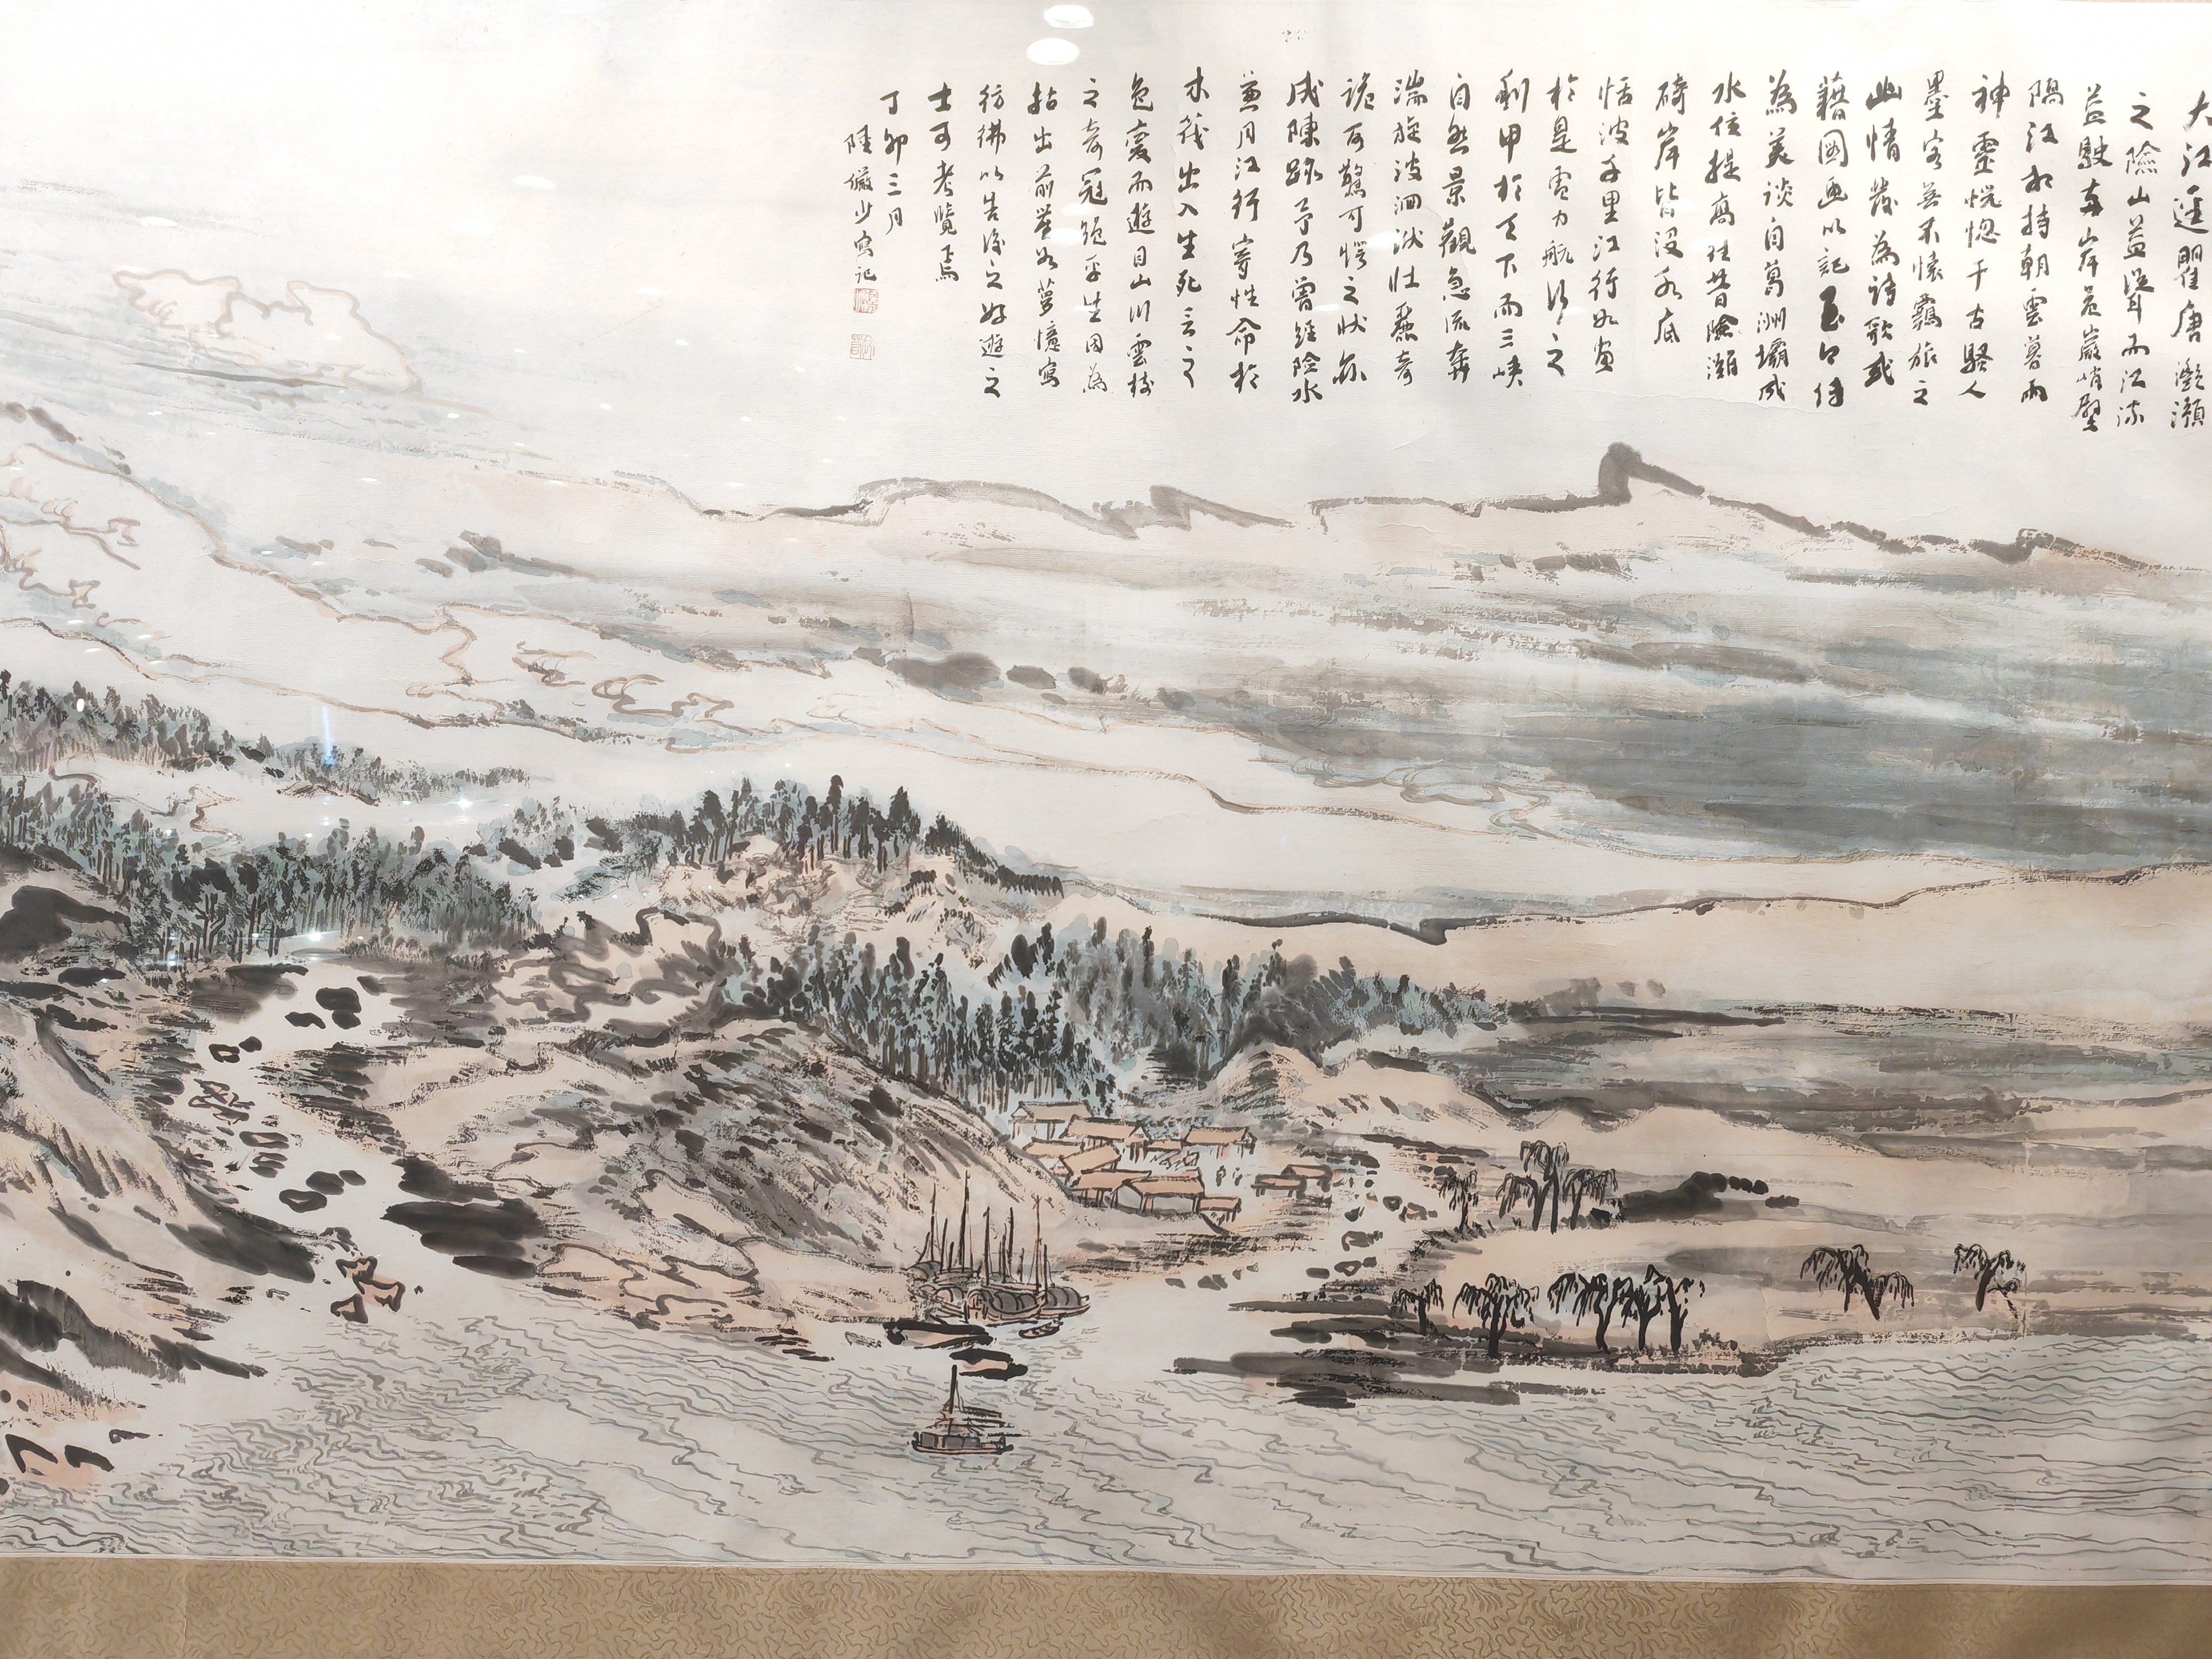 大江逕瞿唐灩澦
之險山益聳而江流
益駛兩岸荒巖峭壁
隔江相持朝雲暮雨
神靈恍惚千古騷人
墨客無不懷羈旅之
幽情發為詩歌或
藉國畫以記至今侍
為美談自葛洲壩成
水位提高往昔險灘
碕岸皆沒水底
恬波千里江行如畫
於是電力航行之
利甲於天下而三峽
自然景觀急流奔
湍旋波洄洑壯麗奇
詭可驚可愕之狀亦
成陳跡予乃曾經險水
兼月江行寄性命於
木筏出入生死之
危憂而遊目山川雲樹
之奇冠絕平生因為
拈出前塵如夢憶寫
彷彿以告後之好遊之
士可考覽焉
丁卯三月
陸儼少寫記